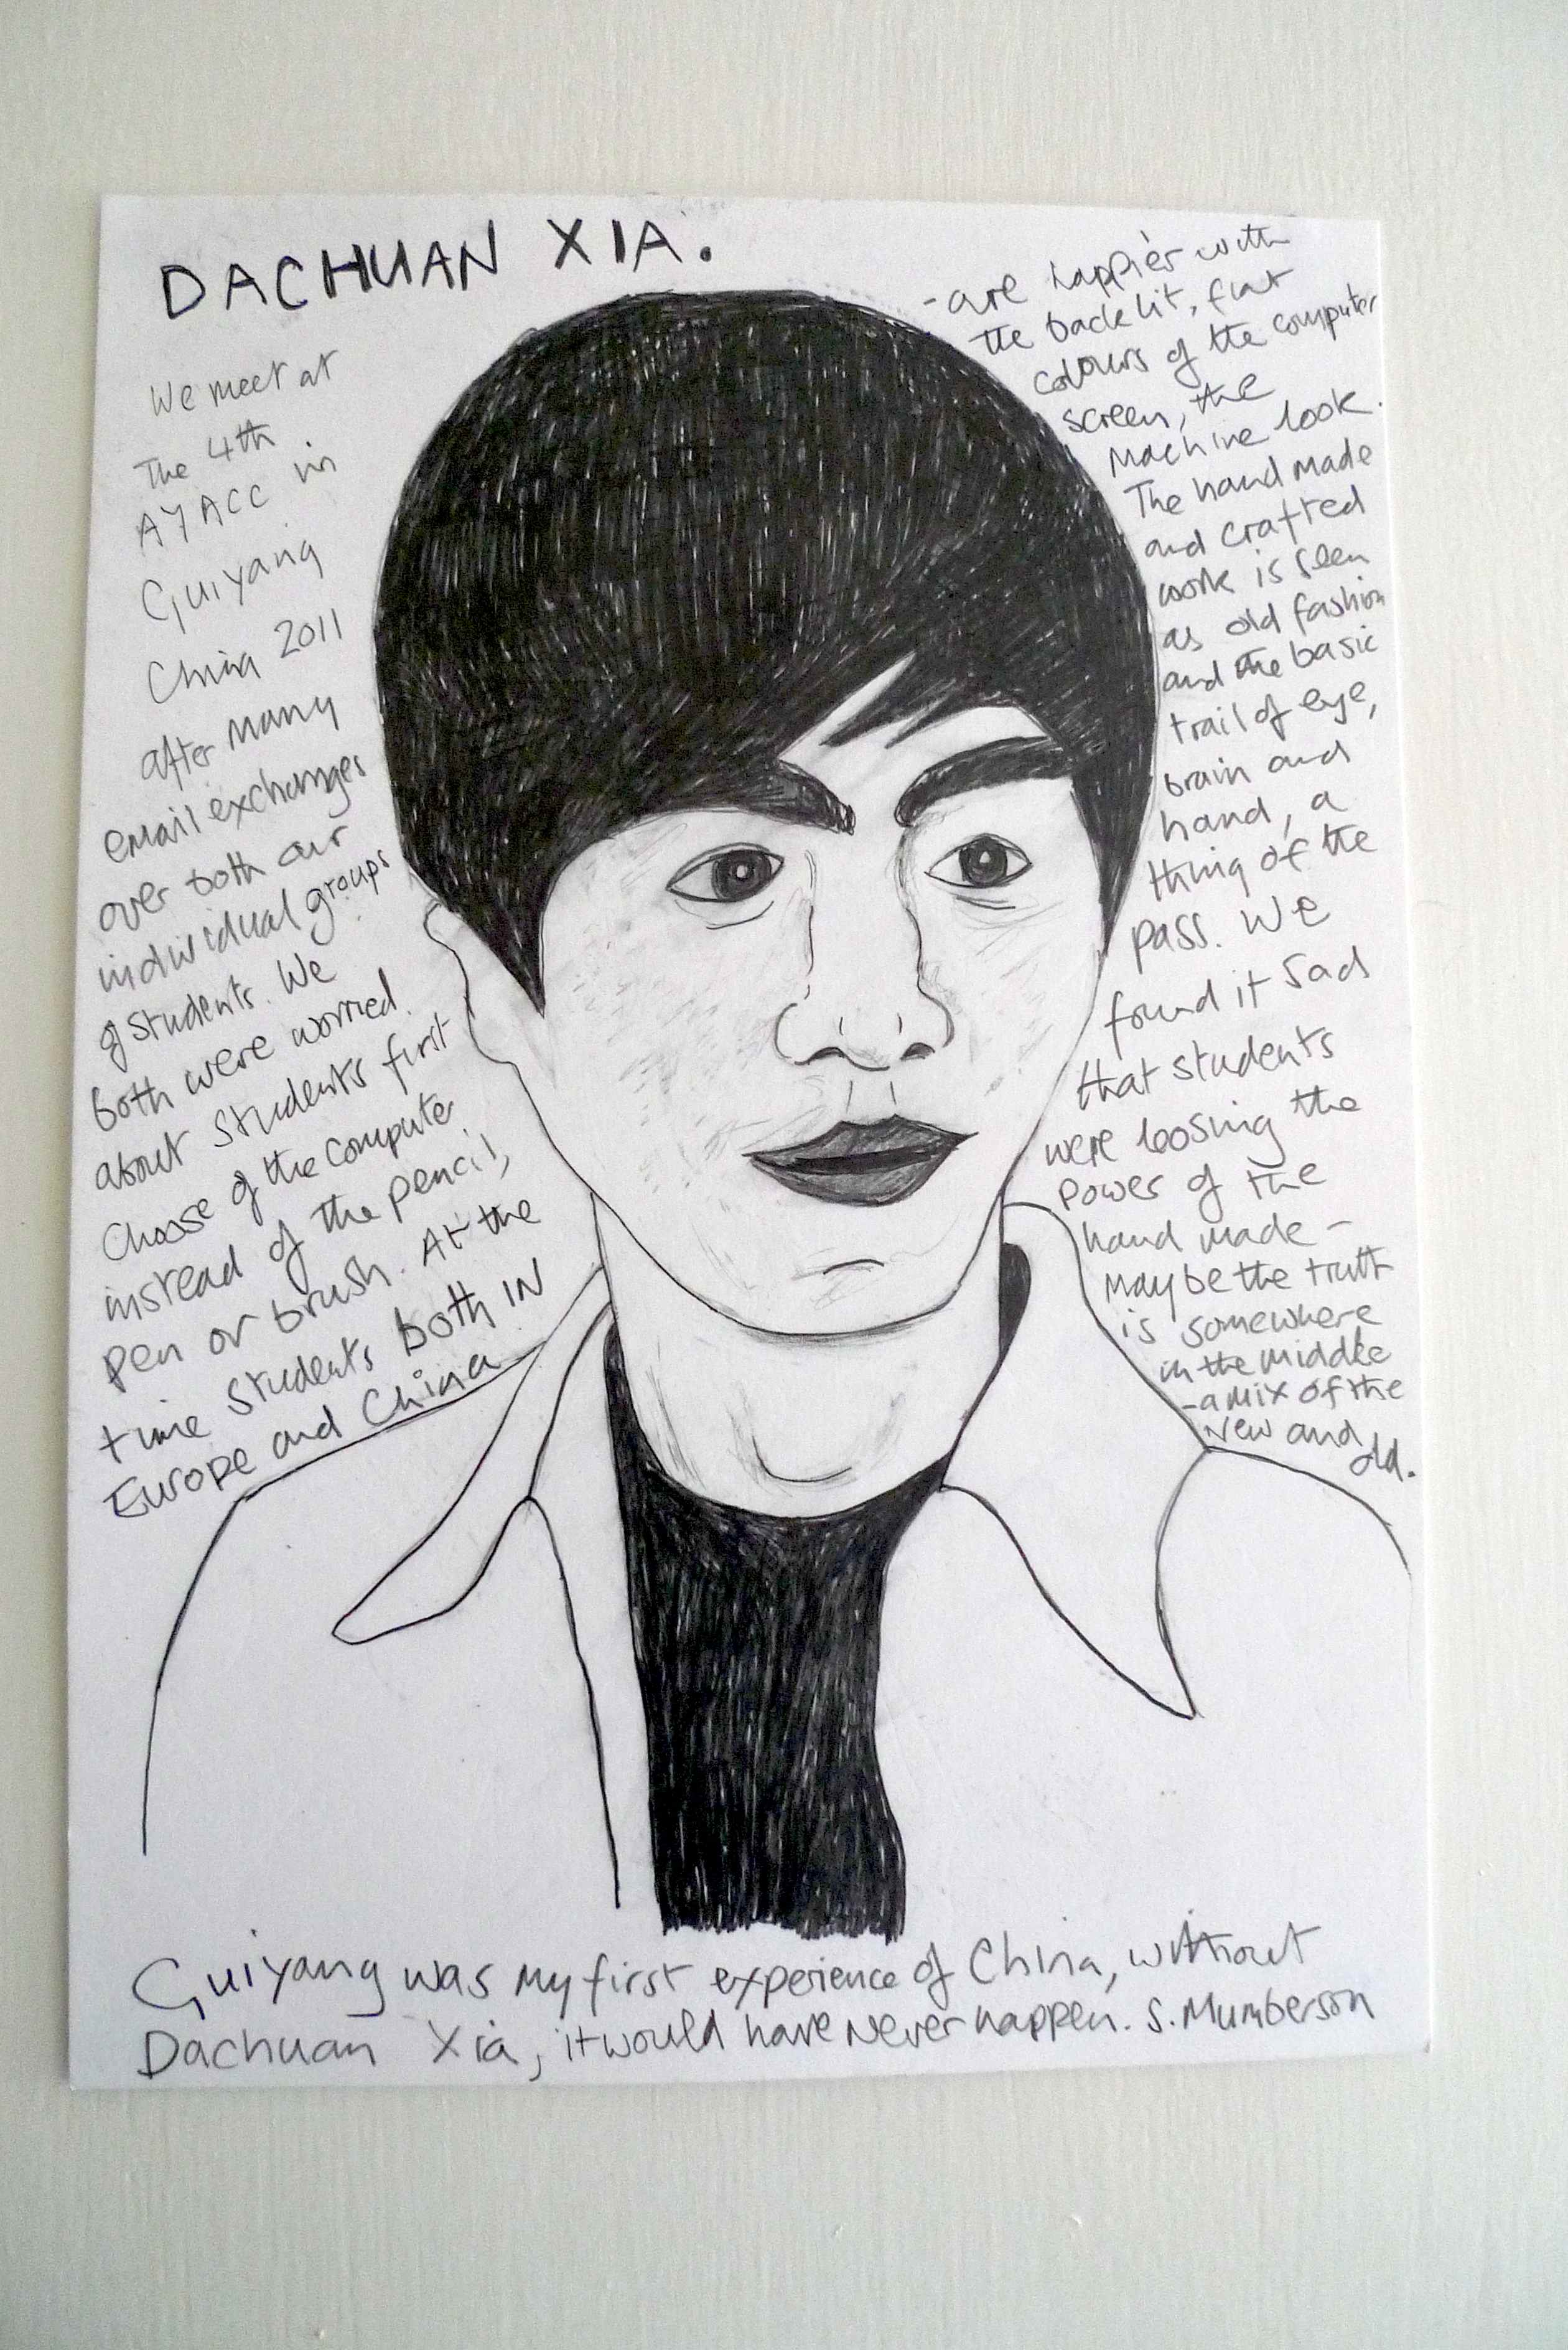 DACHUAN XIA.
We meet at
The 4th
AYACC in
Guiyang
China 2011
after many
email exchanges
over both our
individual groups
of students. We
both were worried.
about students first
Choose of the computer
instead of the pencil,
pen or brush. At the
time students both IN
Europe and China
-are happier with
the back lit, flat
colours of the computer
screen, the
Machine look.
The hand made
and crafted
work is seen
as old fashion
and the basic
trail of eye,
brain and
hand, a
thing of the
pass. We
found it sad
that students
were loosing the
power of the
hand made -
maybe the truth
is somewhere
in the middle
-a mix of the
New and
old.
Guiyang was my first experience of China, without
Dachuan Xia, it would have never happen. S. Mumberson